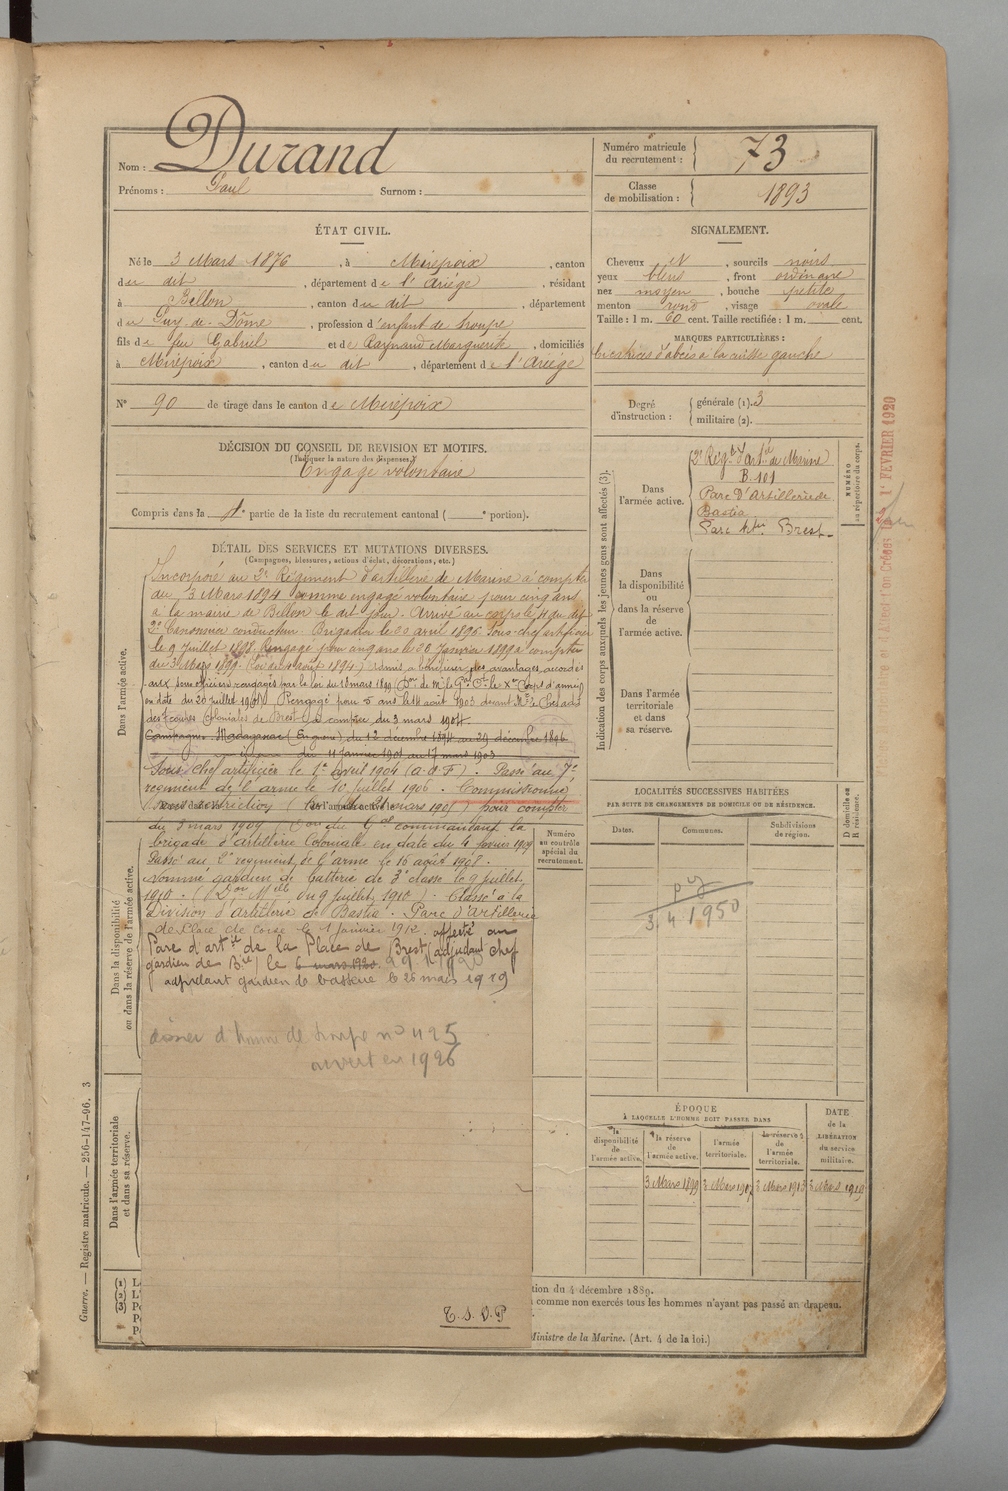 Nom : Durand
Prénoms : Paul Surnom :
Numéro matricule du recrutement : 73
Classe de mobilisation : 1893
ÉTAT CIVIL.
Né le 3 Mars 1876, à Mirepoix, canton
du dit, département de l'Ariége, résidant
à Billon, canton du dit, département
du Puy-de-Dôme, profession d'enfant de troupe
fils de feu Gabriel et de Raynaud Marguerite, domiciliés
à Mirepoix, canton du dit, département de l'Ariége
N° 90 de tirage dans le canton de Mirepoix
SIGNALEMENT.
Cheveux N, sourcils noirs
yeux bleus, front ordinaire
nez moyen, bouche petite
menton rond, visage ovale
Taille : 1 m. 60 cent. Taille rectifiée : 1 m. cent.
MARQUES PARTICULIÈRES :
Cicatrices d'abcès à la cuisse gauche
Degré d'instruction : générale (1). 3
militaire (2).
DÉCISION DU CONSEIL DE REVISION ET MOTIFS.
(Indiquer la nature des dispenses.)
Engagé volontaire
Compris dans la 1e partie de la liste du recrutement cantonal ( e portion).
Indication des corps auxquels les jeunes gens sont affectés (3).
Dans l'armée active.
2e Régt d'artie de Marine
B. 101
Parc D'Artillerie de
Bastia
Parc Brest
NUMÉRO au répertoire du corps.
Dans la disponibilité ou dans la réserve de l'armée active.
Dans l'armée territoriale et dans sa réserve.
1er FEVRIER 1920
DÉTAIL DES SERVICES ET MUTATIONS DIVERSES.
(Campagnes, blessures, actions d'éclat, décorations, etc.)
Dans l'armée active.
Incorporé au 2e Régiment d'artillerie de Marine à compter
du 3 Mars 1894 comme engagé volontaire pour cinq ans
à la mairie de Billon le dit jour. Arrivé au corps le 4 du dit
2e Canonnier conducteur. Brigadier le 22 avril 1896. Sous-chef artificier
le 9 Juillet 1898. Rengagé pour cinq ans le 28 Janvier 1899 à compter
du 3 Mars 1899. admis à bénéficier des avantages accordés
aux sous officiers rengagés par la loi du 18 mars 1889
en date du 20 juillet Rengagé pour 5 ans le 14 août 1903 devant
des troupes Coloniales de Brest à compter du 3 mars 1904.
Campagnes Madagascar (En guerre) du 12 décembre 1894 au 29 décembre 1896
du 11 Janvier 1901 au 17 mars 1903
Sous chef artificier le 1er avril 1904 (a.o.F). Passé au 7e
régiment de l'arme le 10 juillet 1906. Commissionné
mars 1909) pour compter
du 3 mars 1909 commandant la
brigade d'artillerie Coloniale en date du 4 février 1909
Passé au 2e régiment de l'arme le 16 août 1908.
Nommé gardien de batterie de 3e classe le 9 juillet
1910. (Don Mlle du 9 juillet 1910). Classé à la
Division d'artillerie de Bastia. Parc d'artillerie
de Place de Corse le 1 janvier 1912. affecté au
Parc d'artie de la Place de Brest (adjudant chef
gardien de Bie) le 6 mars 1920
adjudant gardien de batterie le 26 mars 1919
dossier d'homme de troupe n° 425
ouvert en 1926
T.S.V.P
Dans la disponibilité ou dans la réserve de l'armée active.
Dans l'armée territoriale et dans sa réserve.
Numéro au contrôle spécial du recrutement.
LOCALITÉS SUCCESSIVES HABITÉES
PAR SUITE DE CHANGEMENTS DE DOMICILE OU DE RÉSIDENCE.
Dates. Communes. Subdivisions de région. D domicile ou R résidence.
3.4 1950
ÉPOQUE
À LAQUELLE L'HOMME DOIT PASSER DANS
la disponibilité de l'armée active. la réserve de l'armée active. l'armée territoriale. la réserve de l'armée territoriale.
DATE de la LIBÉRATION du service militaire.
3 Mars 1899 3 Mars 1907 3 Mars 1913 3 Mars 1919
tion du 4 décembre 1889.
comme non exercés tous les hommes n'ayant pas passé au drapeau.
Ministre de la Marine. (Art. 4 de la loi.)
Guerre. — Registre matricule. — 256-147-96. 3